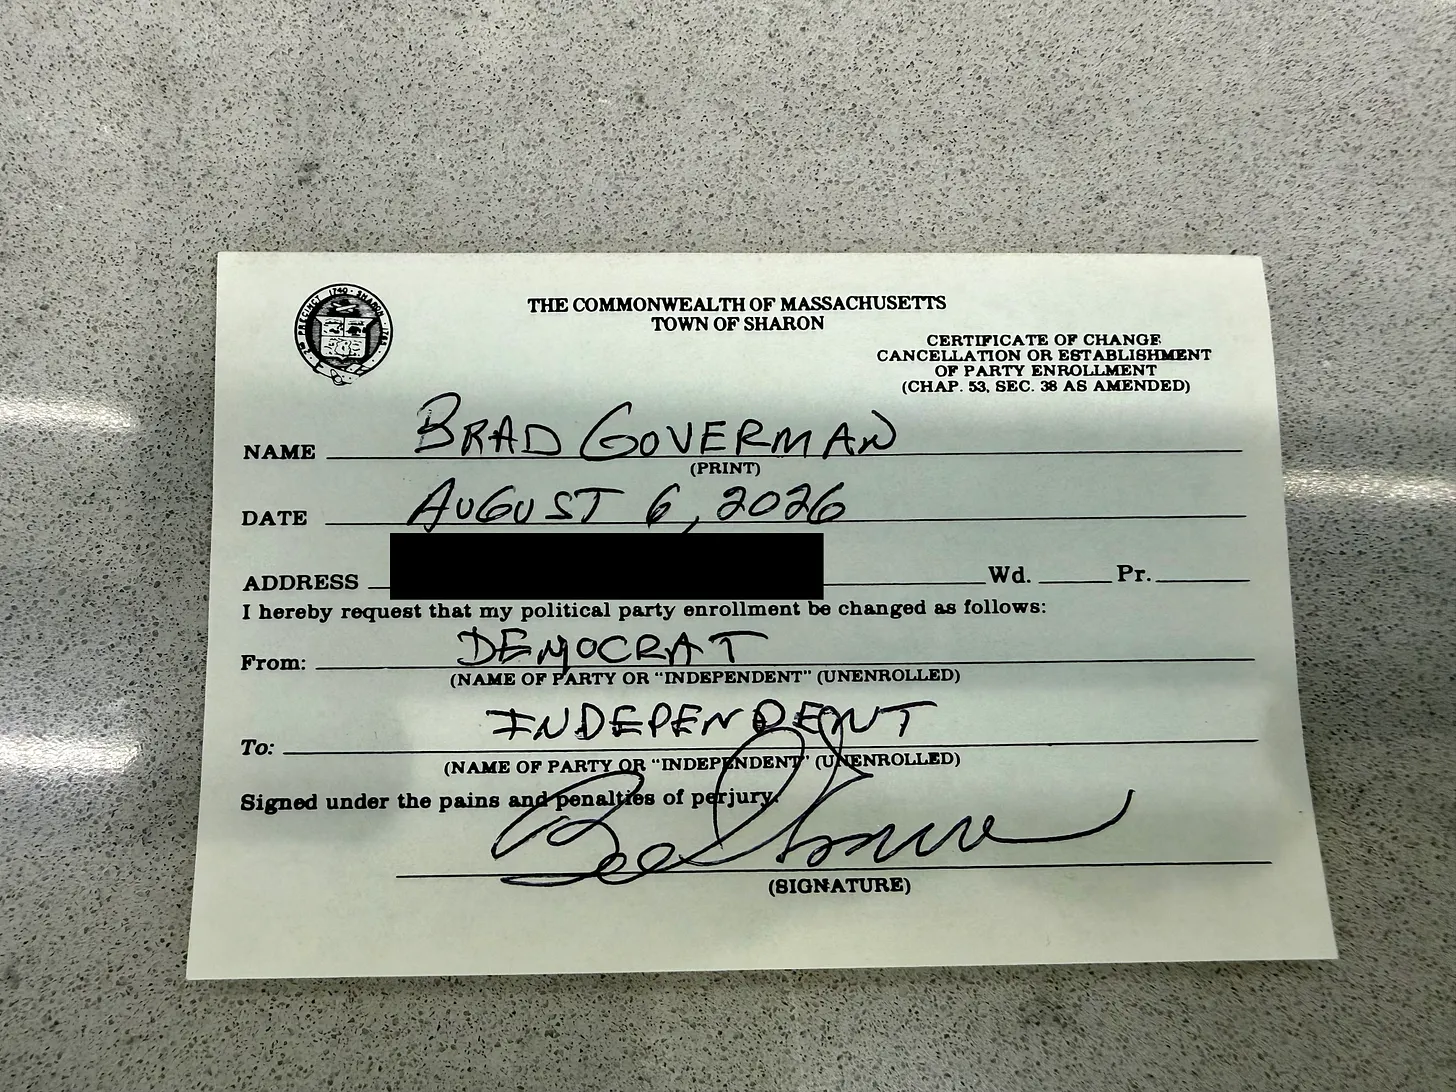 2ND PRECINCT 1740 · SHARON 1765
THE COMMONWEALTH OF MASSACHUSETTS
TOWN OF SHARON
CERTIFICATE OF CHANGE
CANCELLATION OR ESTABLISHMENT
OF PARTY ENROLLMENT
(CHAP. 53, SEC. 38 AS AMENDED)
NAME BRAD GOVERMAN
(PRINT)
DATE AUGUST 6, 2026
ADDRESS Wd. Pr.
I hereby request that my political party enrollment be changed as follows:
From: DEMOCRAT
(NAME OF PARTY OR "INDEPENDENT" (UNENROLLED)
To: INDEPENDENT
(NAME OF PARTY OR "INDEPENDENT" (UNENROLLED)
Signed under the pains and penalties of perjury.
(SIGNATURE)